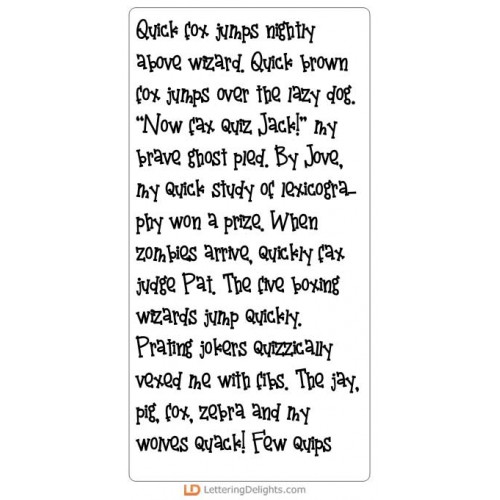 Quick fox jumps nightly
above wizard. Quick brown
fox jumps over the lazy dog.
"Now fax quiz Jack!" my
brave ghost pled. By Jove,
my quick study of lexicogra-
phy won a prize. When
zombies arrive, quickly fax
judge Pat. The five boxing
wizards jump quickly.
Prating jokers quizzically
vexed me with fibs. The jay,
pig, fox, zebra and my
wolves quack! Few quips
LD LetteringDelights.com